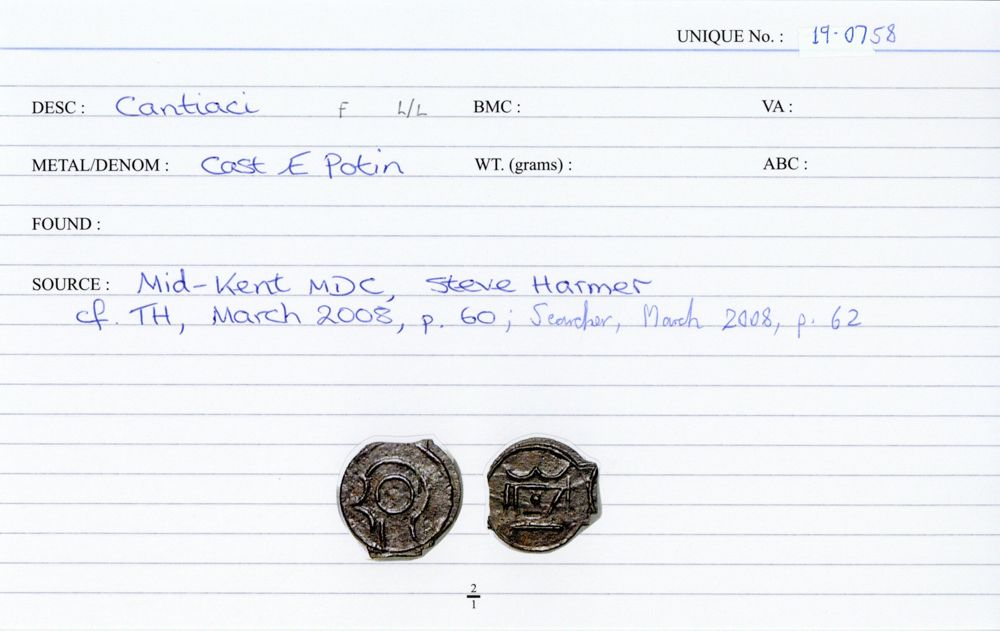 UNIQUE No. : 19-0758
DESC : Cantiaci F L/L BMC : VA :
METAL/DENOM : Cast Æ Potin WT. (grams) : ABC :
FOUND :
SOURCE : Mid-Kent MDC, Steve Harmer
cf. TH, March 2008, p. 60; Searcher, March 2008, p. 62
2
1